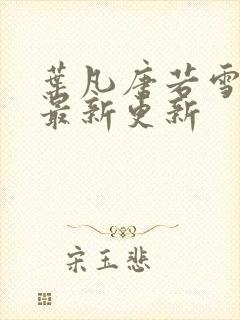 葉凡唐若雪
最新更新
宋玉悲